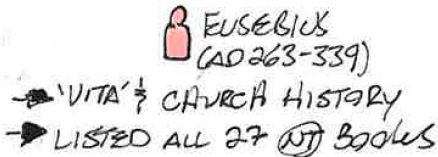 EUSEBIUS
(AD 263-339)
'VITA' & CHURCH HISTORY
LISTED ALL 27 NT BOOKS